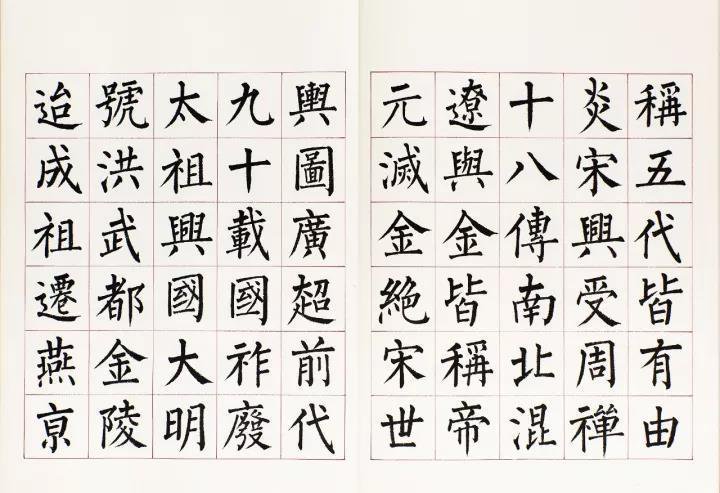 稱五代皆有由
炎宋興受周禪
十八傳南北混
遼與金皆稱帝
元滅金絕宋世
輿圖廣超前代
九十載國祚廢
太祖興國大明
號洪武都金陵
迨成祖遷燕亰